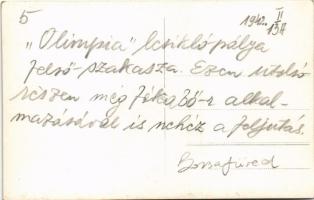 5
1942. II
13/I
„Olimpia" lesikló pálya
felső-szakasza. Ezen utolsó
részen még fékező-r alkal-
mazásával is nehéz a feljutás.
Borsafüred